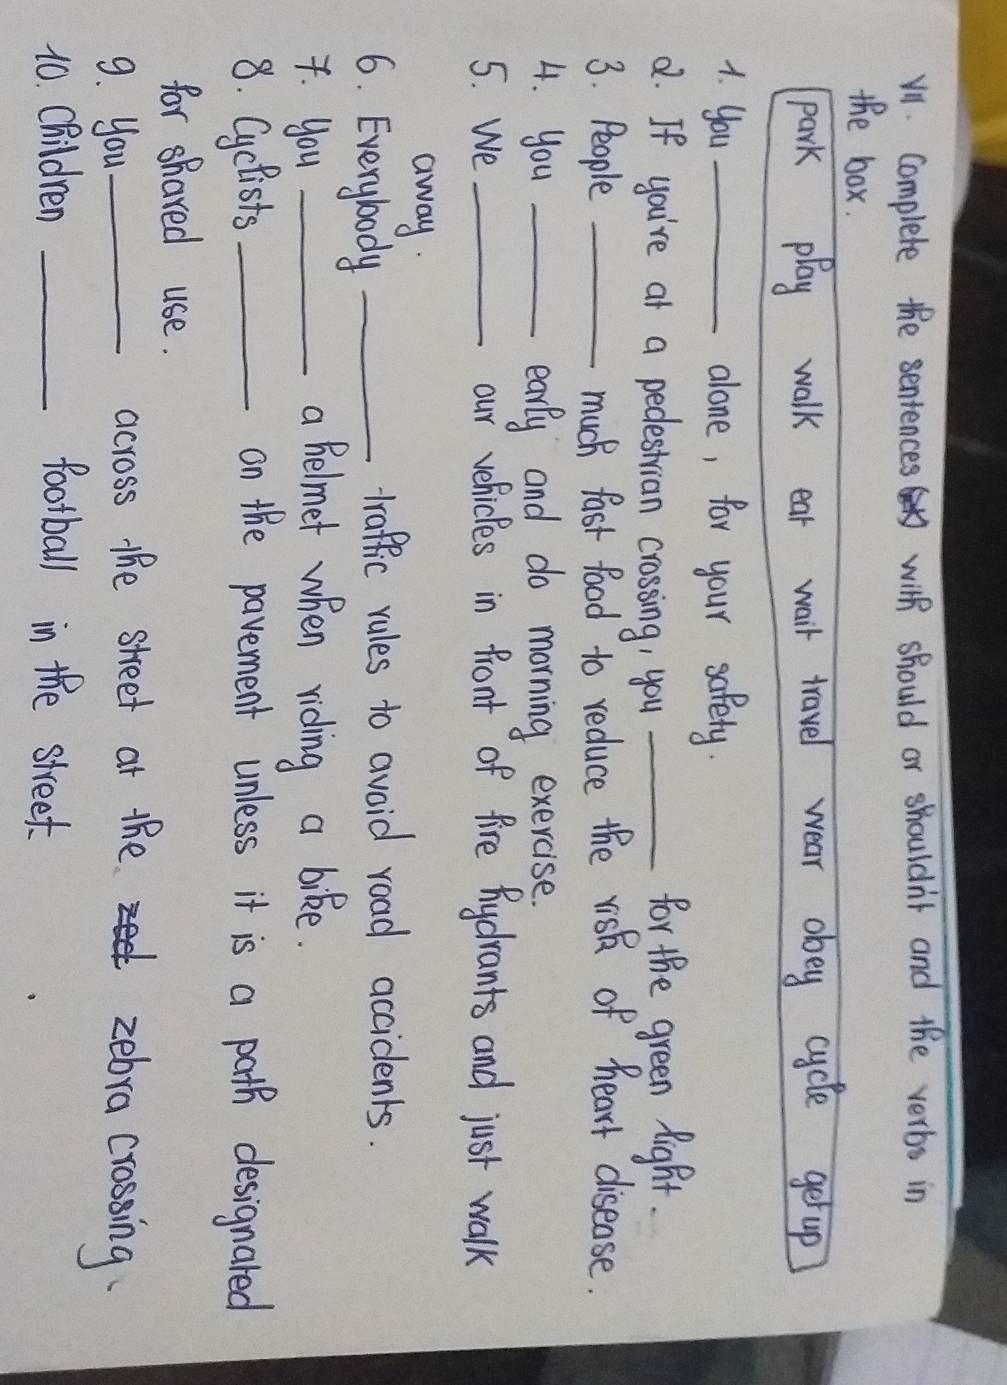 VII. Complete the sentences with should or shouldn't and the verbs in
the box.
park play walk eat wait travel wear obey cycle get up
1. You ______ alone, for your safety.
2. If you're at a pedestrian crossing, you ______ for the green light.
3. People ______ much fast food to reduce the risk of heart disease.
4. You ______ early and do morning exercise.
5. We ______ our vehicles in front of fire hydrants and just walk
away.
6. Everybody ______ traffic rules to avoid road accidents.
7. You ______ a helmet when riding a bike.
8. Cyclists ______ on the pavement unless it is a path designated
for shared use.
9. You ______ across the street at the zebra crossing.
10. Children ______ football in the street.